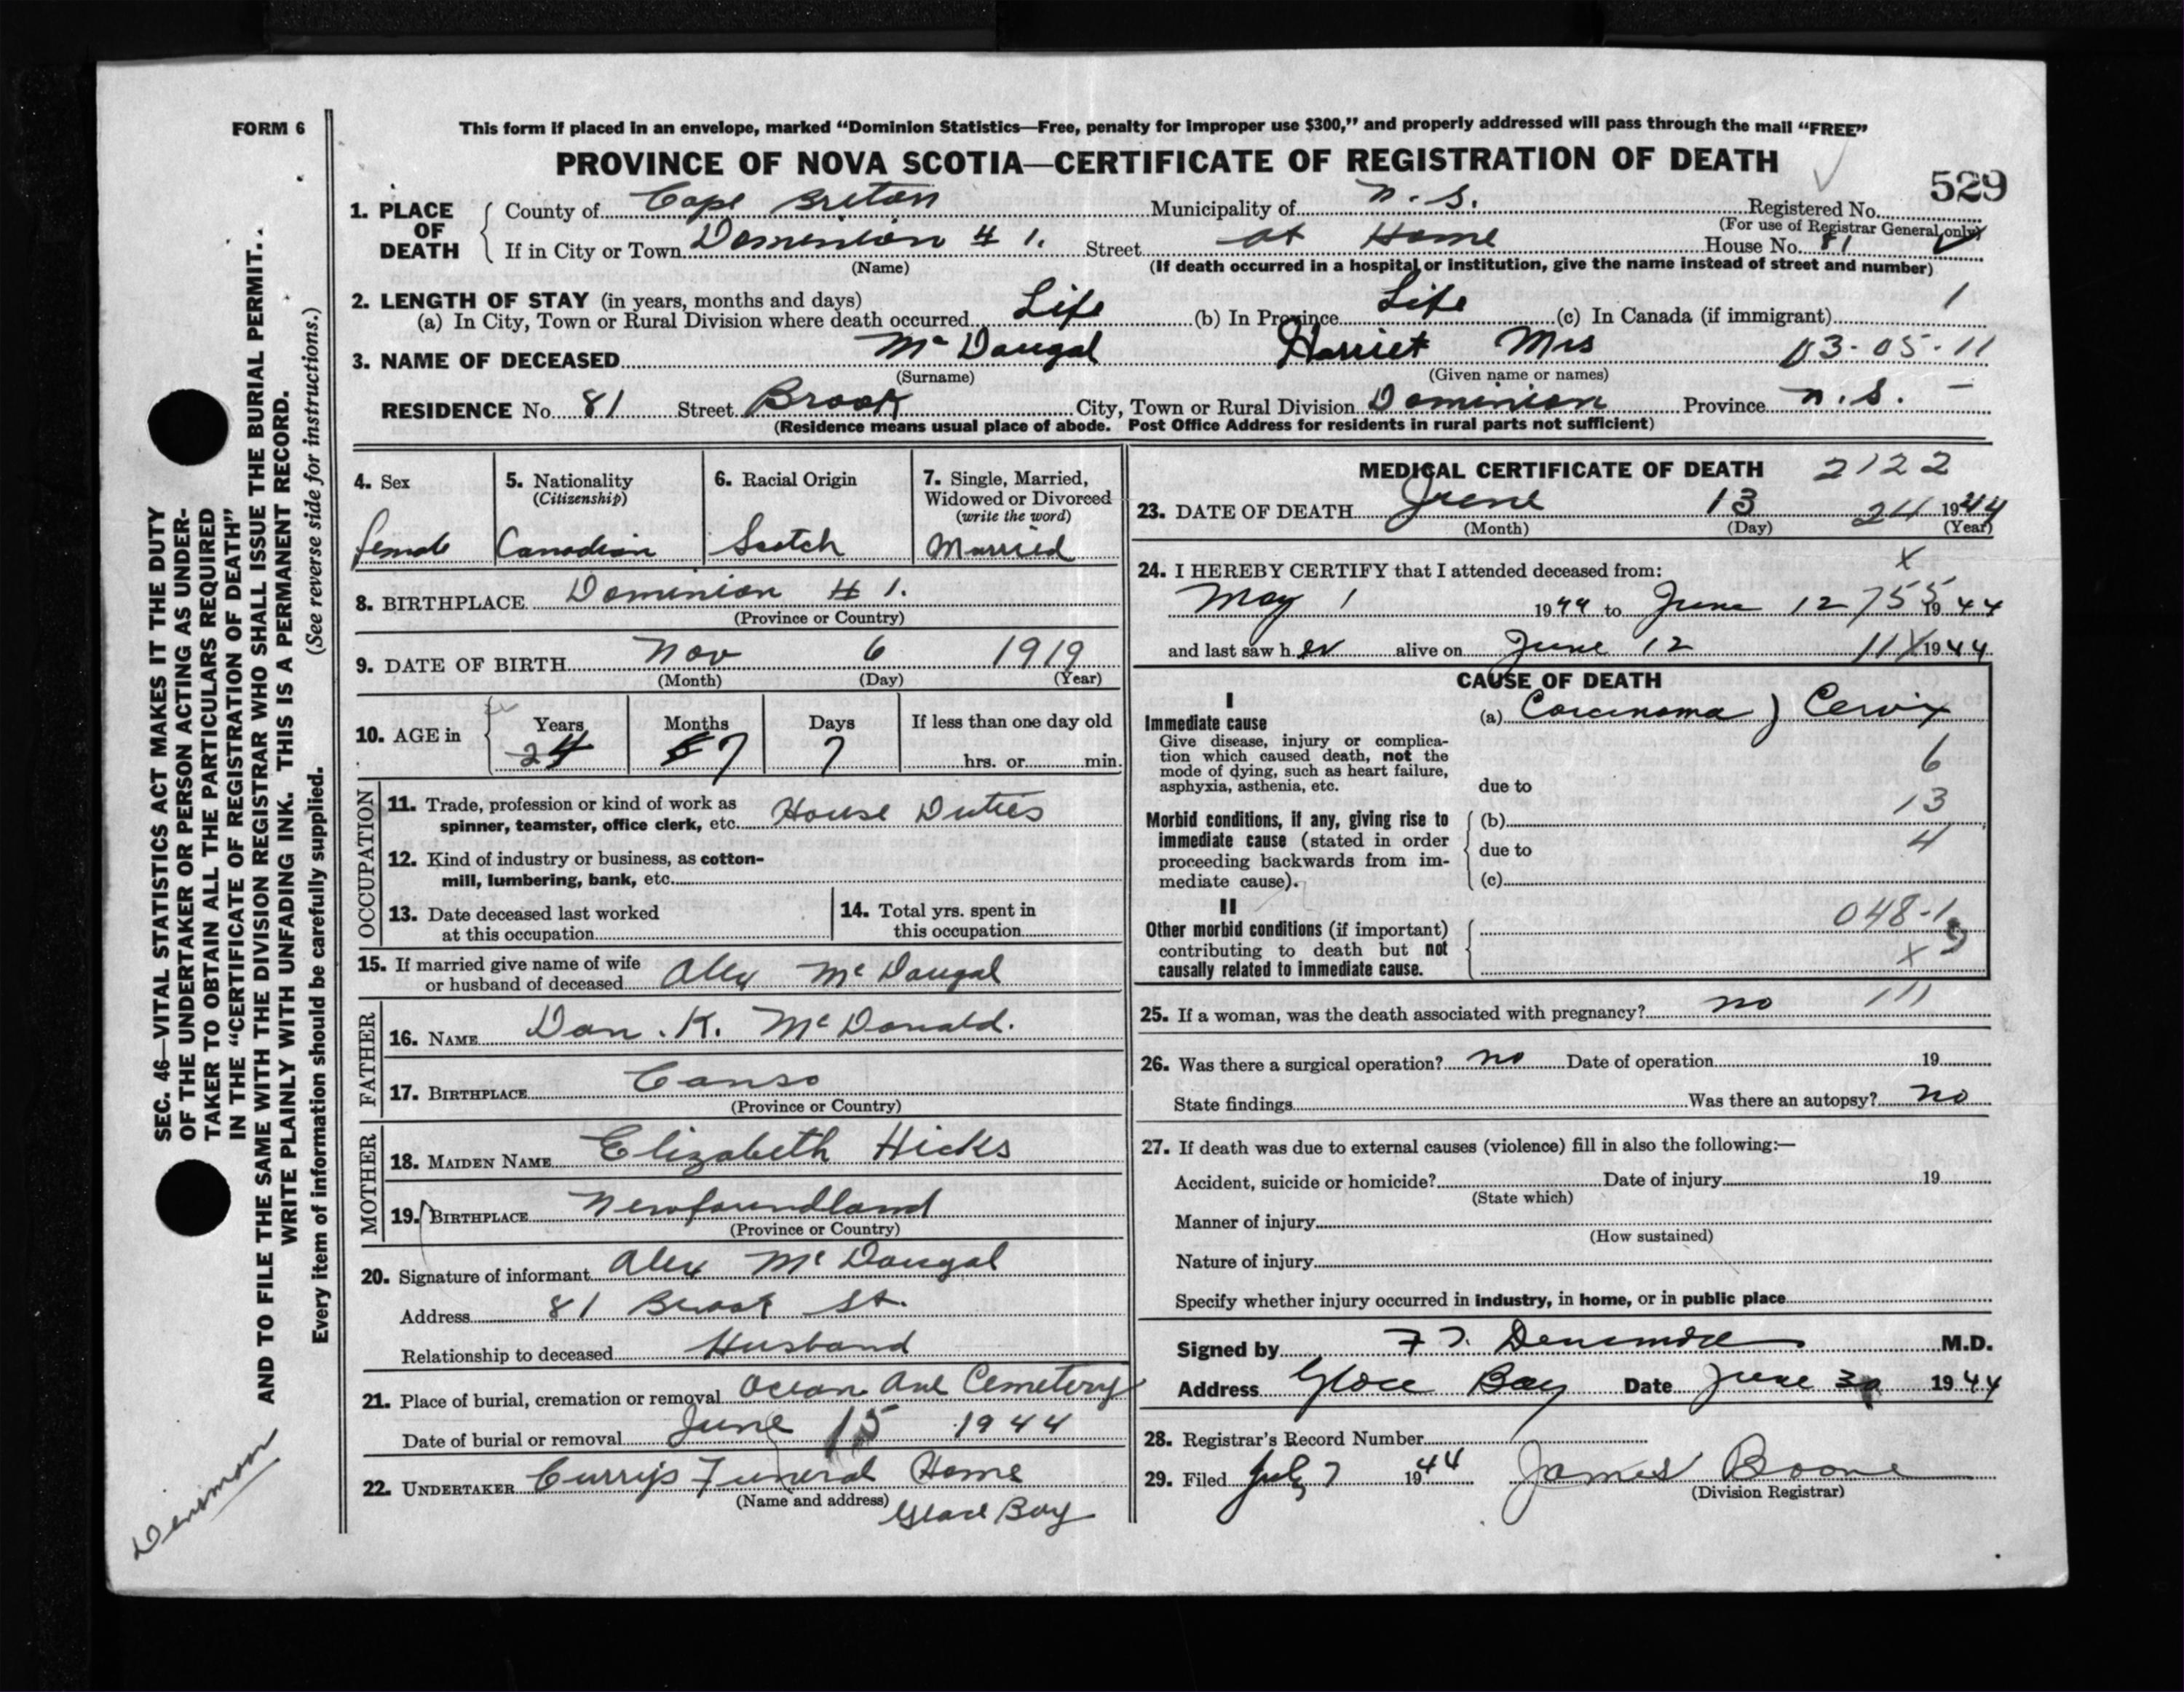 FORM 6
This form if placed in an envelope, marked “Dominion Statistics—Free, penalty for improper use $300,” and properly addressed will pass through the mail “FREE”
PROVINCE OF NOVA SCOTIA—CERTIFICATE OF REGISTRATION OF DEATH
529
1. PLACE OF DEATH
County of Cape Breton Municipality of N.S. Registered No.
(For use of Registrar General only)
If in City or Town Dominion # 1. Street at Home House No. 81
(Name) (If death occurred in a hospital or institution, give the name instead of street and number)
2. LENGTH OF STAY (in years, months and days)
(a) In City, Town or Rural Division where death occurred Life (b) In Province Life (c) In Canada (if immigrant) 1
3. NAME OF DECEASED McDougal Harriet Mrs 03-05-11
(Surname) (Given name or names)
RESIDENCE No. 81 Street Brook City, Town or Rural Division Dominion Province N.S. –
(Residence means usual place of abode. Post Office Address for residents in rural parts not sufficient)
4. Sex
female
5. Nationality
(Citizenship)
Canadian
6. Racial Origin
Scotch
7. Single, Married,
Widowed or Divorced
(write the word)
Married
8. BIRTHPLACE Dominion # 1.
(Province or Country)
9. DATE OF BIRTH Nov 6 1919
(Month) (Day) (Year)
10. AGE in
Years Months Days If less than one day old
24 7 7 hrs. or min.
OCCUPATION
11. Trade, profession or kind of work as
spinner, teamster, office clerk, etc. House Duties
12. Kind of industry or business, as cotton-
mill, lumbering, bank, etc.
13. Date deceased last worked
at this occupation
14. Total yrs. spent in
this occupation
15. If married give name of wife
or husband of deceased Alex McDougal
FATHER
16. NAME Dan. K. McDonald.
17. BIRTHPLACE Canso
(Province or Country)
MOTHER
18. MAIDEN NAME Elizabeth Hicks
19. BIRTHPLACE Newfoundland
(Province or Country)
20. Signature of informant Alex McDougal
Address 81 Brook St.
Relationship to deceased Husband
21. Place of burial, cremation or removal Ocean Ave Cemetery
Date of burial or removal June 15 1944
22. UNDERTAKER Curry's Funeral Home
(Name and address) Glace Bay
MEDICAL CERTIFICATE OF DEATH 2122
23. DATE OF DEATH June 13 24 1944
(Month) (Day) (Year)
24. I HEREBY CERTIFY that I attended deceased from: x
May 1 1944 to June 12 755 1944
and last saw h er alive on June 12 11X 1944
CAUSE OF DEATH
I
Immediate cause
Give disease, injury or complica-
tion which caused death, not the
mode of dying, such as heart failure,
asphyxia, asthenia, etc.
(a) Carcinoma ) Cervix
6
due to
13
Morbid conditions, if any, giving rise to
immediate cause (stated in order
proceeding backwards from im-
mediate cause).
(b)
due to 4
(c)
II
Other morbid conditions (if important)
contributing to death but not
causally related to immediate cause.
048-1
9
x
25. If a woman, was the death associated with pregnancy? no 111
26. Was there a surgical operation? no Date of operation 19
State findings Was there an autopsy? no
27. If death was due to external causes (violence) fill in also the following:—
Accident, suicide or homicide? Date of injury 19
(State which)
Manner of injury
(How sustained)
Nature of injury
Specify whether injury occurred in industry, in home, or in public place
Signed by F T. Densmore M.D.
Address Glace Bay Date June 30 1944
28. Registrar's Record Number
29. Filed July 7 1944 James Boone
(Division Registrar)
SEC. 46—VITAL STATISTICS ACT MAKES IT THE DUTY
OF THE UNDERTAKER OR PERSON ACTING AS UNDER-
TAKER TO OBTAIN ALL THE PARTICULARS REQUIRED
IN THE “CERTIFICATE OF REGISTRATION OF DEATH”
AND TO FILE THE SAME WITH THE DIVISION REGISTRAR WHO SHALL ISSUE THE BURIAL PERMIT.
WRITE PLAINLY WITH UNFADING INK. THIS IS A PERMANENT RECORD.
Every item of information should be carefully supplied. (See reverse side for instructions.)